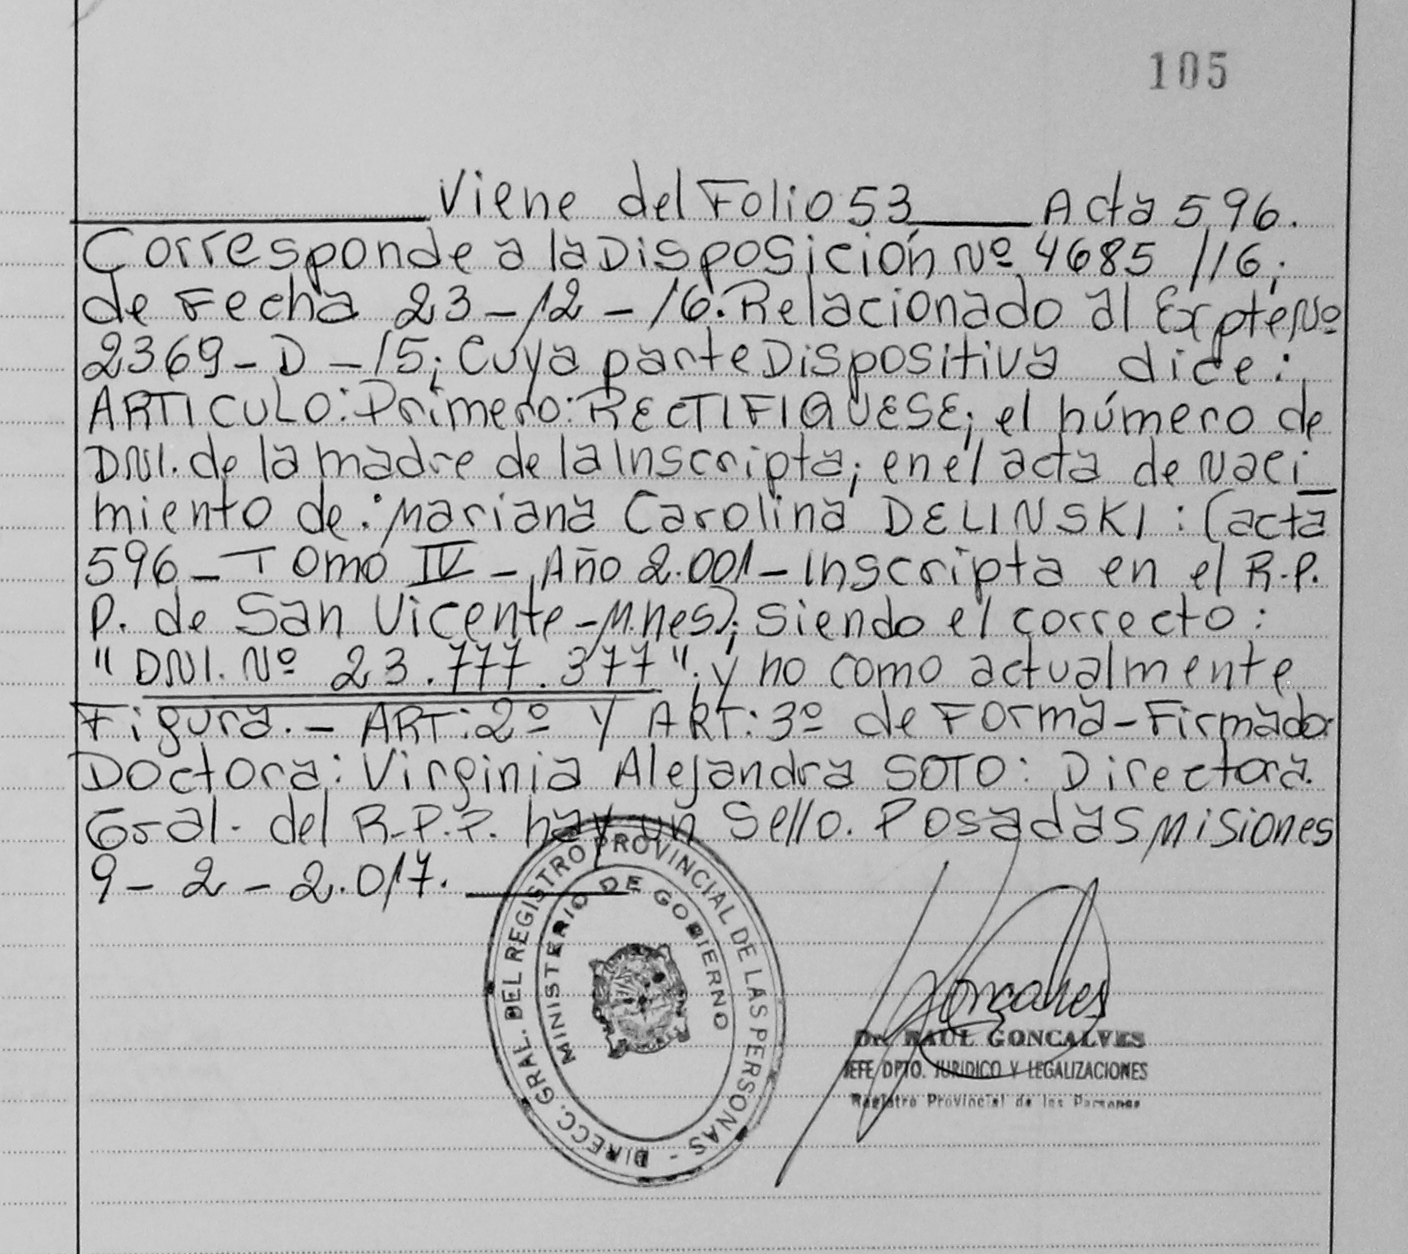 105
Viene del Folio 53 Acta 596.
Corresponde a la Disposición Nº 4685 /16;
de Fecha 23-12-16. Relacionado al Expte Nº
2369-D-15; Cuya parte Dispositiva dice:
ARTICULO: Primero: RECTIFIQUESE; el número de
DNI. de la madre de la Inscripta; en el acta de Naci
miento de: Mariana Carolina DELINSKI: (acta
596 - Tomo IV - Año 2.001 - Inscripta en el R.P.
P. de San Vicente - Mnes); siendo el correcto:
"DNI. Nº 23.777.377"; y no como actualmente
Figura. - ART: 2º y ART: 3º de Forma - Firmado
Doctora: Virginia Alejandra SOTO: Directora.
Gral. del R.P.P. hay un Sello. Posadas Misiones
9-2-2.017.
DIRECC. GRAL. DEL REGISTRO PROVINCIAL DE LAS PERSONAS -
MINISTERIO DE GOBIERNO
Goncalves
Dr. RAUL GONCALVES
JEFE DPTO. JURIDICO Y LEGALIZACIONES
Registro Provincial de las Personas